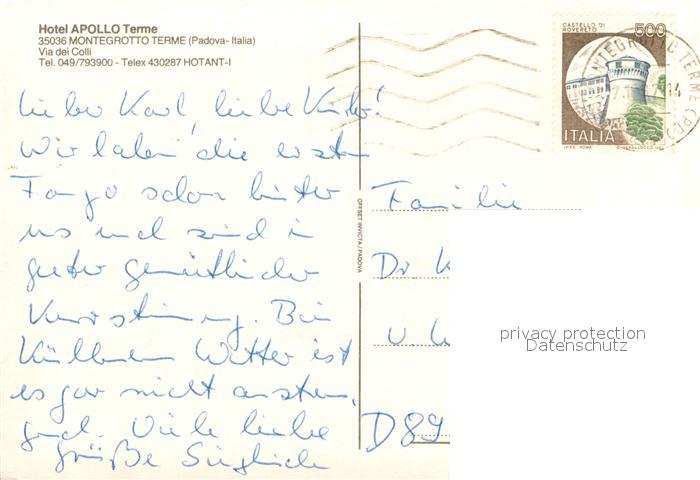 Hotel APOLLO Terme
35036 MONTEGROTTO TERME (Padova- Italia)
Via dei Colli
Tel. 049/793900 - Telex 430287 HOTANT-I
CASTELLO DI ROVERETO
500
ITALIA
OFFSET INVICTA / PADOVA
Lieber Karl, liebe
Wir haben die ersten
Fango schon hinter
uns und sind in
guter gemütlicher
Kurstimmung. Bei
kühlem Wetter ist
es gar nicht anstren-
gend. Viele liebe
Grüße
Familie
Dr K
D 89
privacy protection
Datenschutz